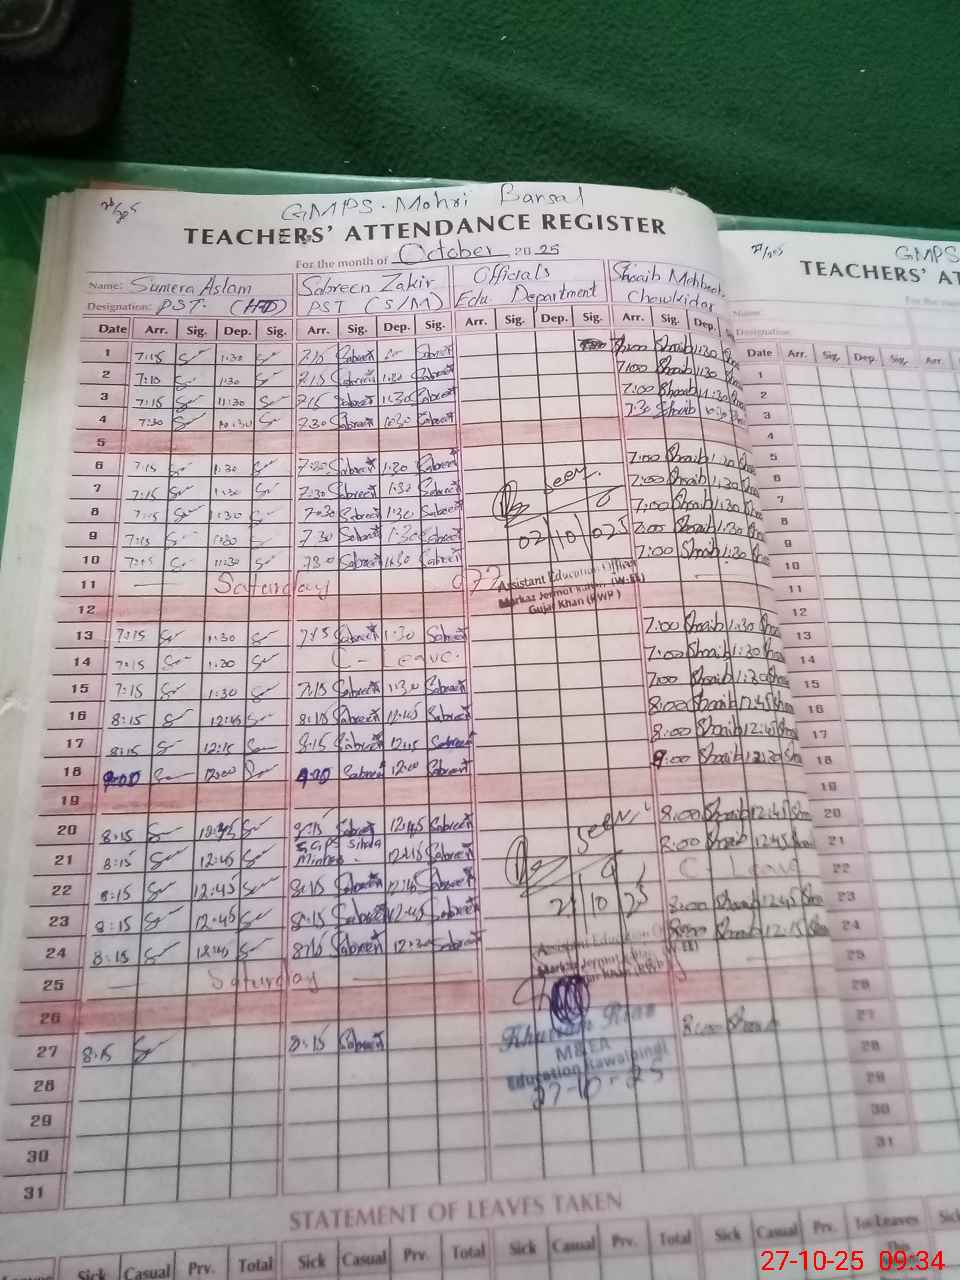 GMPS. Mohri Bansal
TEACHERS' ATTENDANCE REGISTER
For the month of October 2025
Name: Sumera Aslam Sabreen Zakir Officials Shoaib Mehboob
Designation: PST. PST (S/M) Edu. Department Chowkidar
Date Arr. Sig. Dep. Sig. Arr. Sig. Dep. Sig. Arr. Sig. Dep. Sig. Arr. Sig. Dep.
1 7:15 1:30 7:15 Sabreen Sabreen 7:00 Shoaib 1:30
2 7:10 1:30 7:15 Sabreen 1:30 Sabreen 7:00 Shoaib 1:30
3 7:15 11:30 7:15 Sabreen 11:30 Sabreen 7:00 Shoaib 11:30
4 7:30 10:30 7:30 Sabreen 10:30 Sabreen 7:30 Shoaib 10:30
5
6 7:15 1:30 7:30 Sabreen 1:30 Sabreen 7:00 Shoaib 1:30
7 7:15 1:30 7:30 Sabreen 1:30 Sabreen Seen. 7:00 Shoaib 1:30
8 7:15 1:30 7:30 Sabreen 1:30 Sabreen 7:00 Shoaib 1:30
9 7:15 1:30 7:30 Sabreen 1:30 Sabreen 02/10/025 7:00 Shoaib 1:30
10 7:15 11:30 7:30 Sabreen 11:30 Sabreen 7:00 Shoaib 1:30
11 Saturday Assistant Education Officer
Markaz Jermot Kalan, (W-EE)
12 Gujar Khan (RWP)
13 7:15 1:30 7:15 Sabreen 1:30 Sabreen 7:00 Shoaib 1:30
14 7:15 1:30 C- Leave. 7:00 Shoaib 1:30
15 7:15 1:30 7:15 Sabreen 1:30 Sabreen 7:00 Shoaib 1:30
16 8:15 12:45 8:15 Sabreen 12:45 Sabreen 8:00 Shoaib 12:45
17 8:15 12:15 8:15 Sabreen 12:15 Sabreen 8:00 Shoaib 12:45
18 9:00 12:00 9:00 Sabreen 12:00 Sabreen 9:00 Shoaib 12:30
19
20 8:15 12:45 8:15 Sabreen 12:45 Sabreen Seen 8:00 Shoaib 12:45
21 8:15 12:45 GGPS Sihala 12:45 Sabreen 8:00 Shoaib 12:45
22 8:15 12:45 8:15 Sabreen 12:45 Sabreen C- Leave
23 8:15 12:45 8:15 Sabreen 12:45 Sabreen 21/10/25 8:00 Shoaib 12:45
24 8:15 12:40 8:15 Sabreen 12:30 Sabreen 8:00 Shoaib 12:15
Assistant Education
25 Saturday
26
Khurram Riaz
27 8:15 8:15 Sabreen 8:00 Shoaib
M&EA
28 Education Rawalpindi
27-10-25
29
30
31
STATEMENT OF LEAVES TAKEN
Leaves Sick Casual Prv. Total Sick Casual Prv. Total Sick Casual Prv. Total Sick Casual Prv. Tot: Leaves This
GMPS
TEACHERS' AT
For the
Name:
Designation:
Date Arr. Sig. Dep. Sig. Arr.
1
2
3
4
5
6
7
8
9
10
11
12
13
14
15
16
17
18
19
20
21
22
23
24
25
26
27
28
29
30
31
27-10-25 09:34